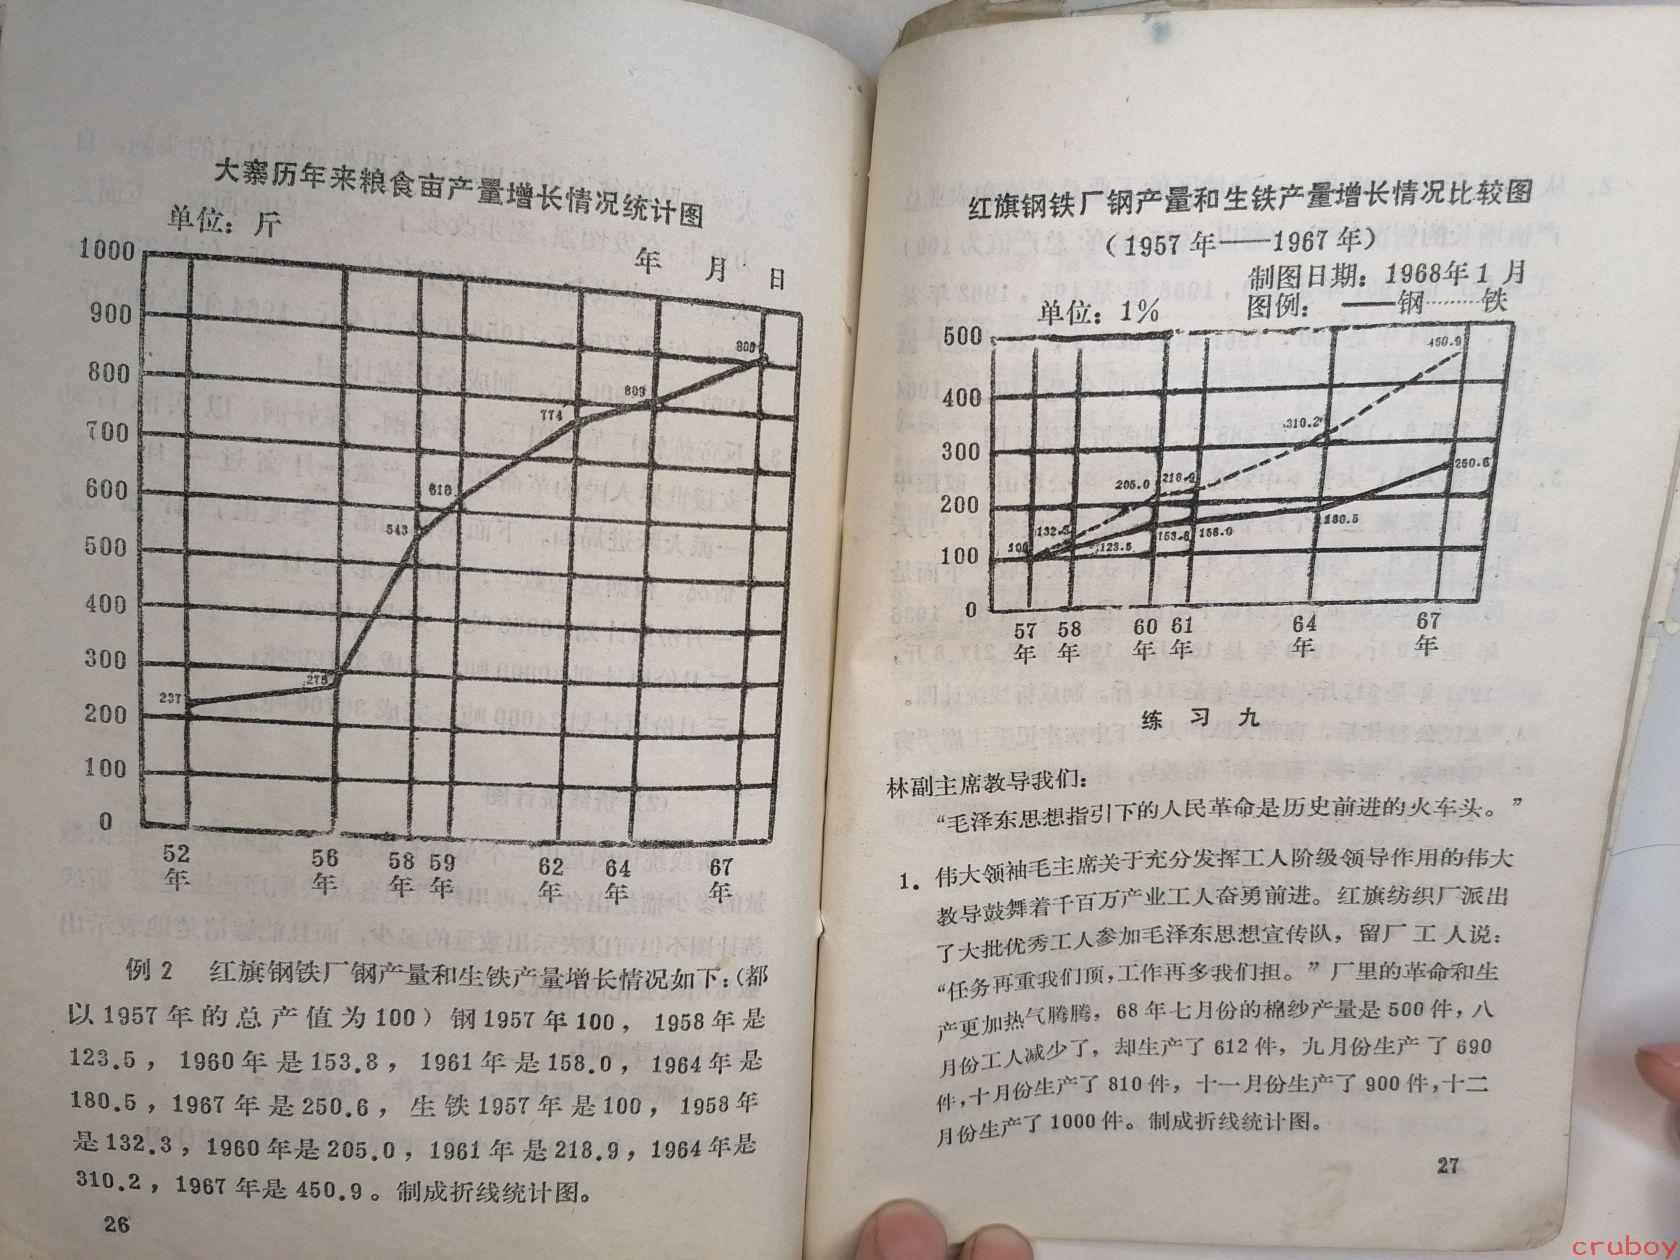 大寨历年来粮食亩产量增长情况统计图
单位：斤
年 月 日
1000
900
800
700
600
500
400
300
200
100
0
237
275
543
610
774
809
52年
56年
58年
59年
62年
64年
67年
例2 红旗钢铁厂钢产量和生铁产量增长情况如下：（都
以1957年的总产值为100）钢1957年100，1958年是
123.5，1960年是153.8，1961年是158.0，1964年是
180.5，1967年是250.6，生铁1957年是100，1958年
是132.3，1960年是205.0，1961年是218.9，1964年是
310.2，1967年是450.9。制成折线统计图。
26
红旗钢铁厂钢产量和生铁产量增长情况比较图
（1957年——1967年）
制图日期：1968年1月
单位：1%
图例：——钢………铁
500
400
300
200
100
0
450.9
310.2
205.0
218.9
132.3
100
123.5
153.8
158.0
180.5
250.6
57年
58年
60年
61年
64年
67年
练习九
林副主席教导我们：
“毛泽东思想指引下的人民革命是历史前进的火车头。”
1. 伟大领袖毛主席关于充分发挥工人阶级领导作用的伟大
教导鼓舞着千百万产业工人奋勇前进。红旗纺织厂派出
了大批优秀工人参加毛泽东思想宣传队，留厂工人说：
“任务再重我们顶，工作再多我们担。”厂里的革命和生
产更加热气腾腾，68年七月份的棉纱产量是500件，八
月份工人减少了，却生产了612件，九月份生产了690
件，十月份生产了810件，十一月份生产了900件，十二
月份生产了1000件。制成折线统计图。
27
cruboy